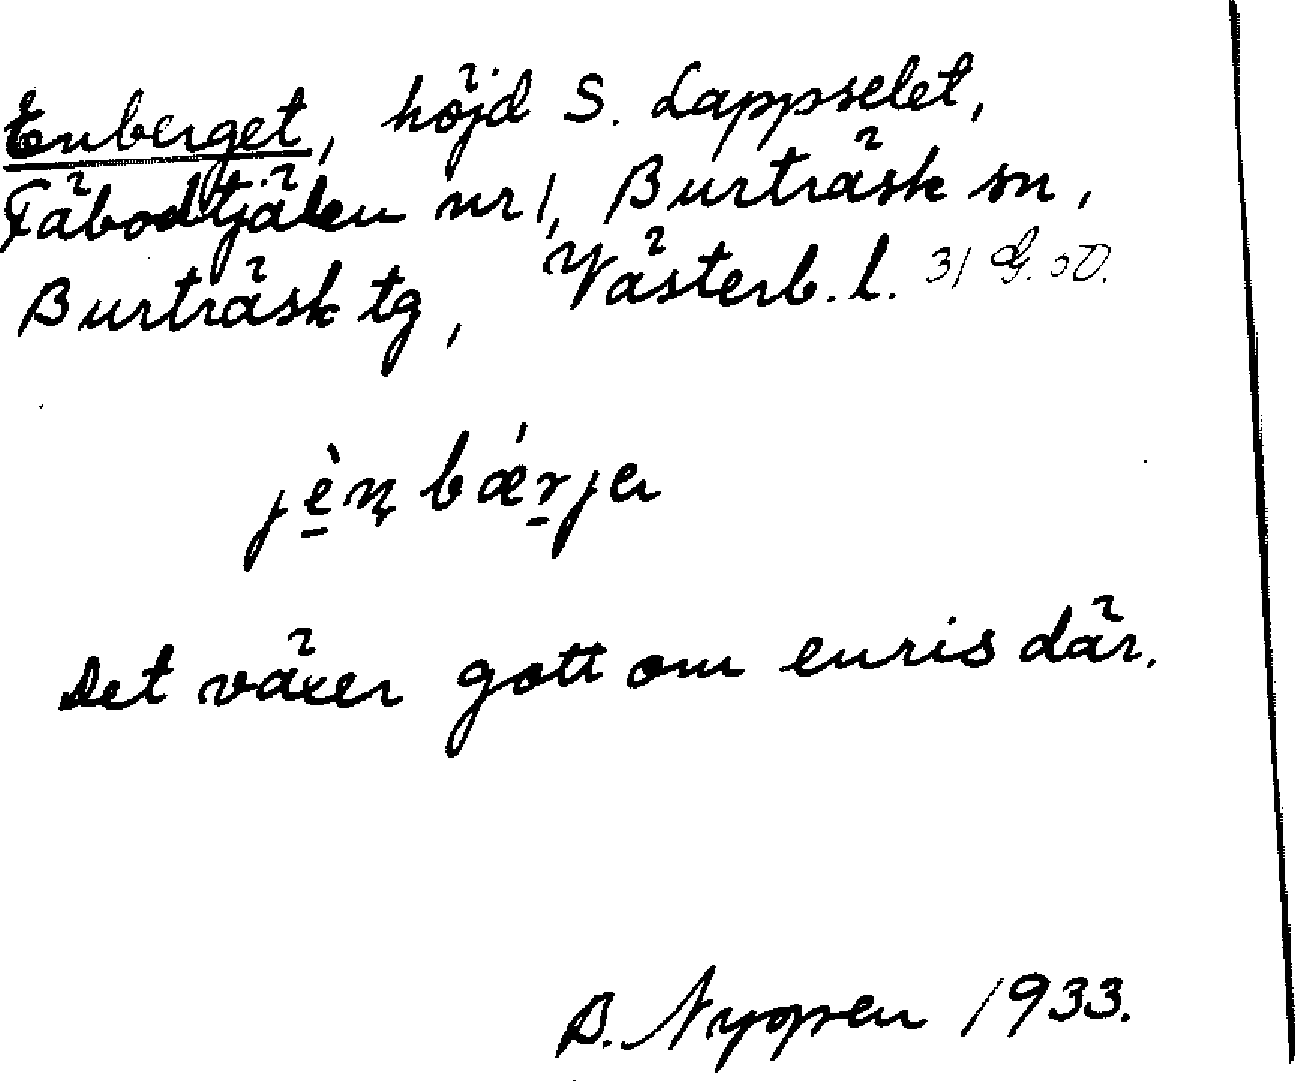 Enberget, höjd S. Lappselet,
Fäbodtjälen nr 1, Burträsk sn,
Burträsk tg, Västerb. l. 31 G. SO.
jèn bǽrjer
Det växer gott om enris där.
B. Nygren 1933.